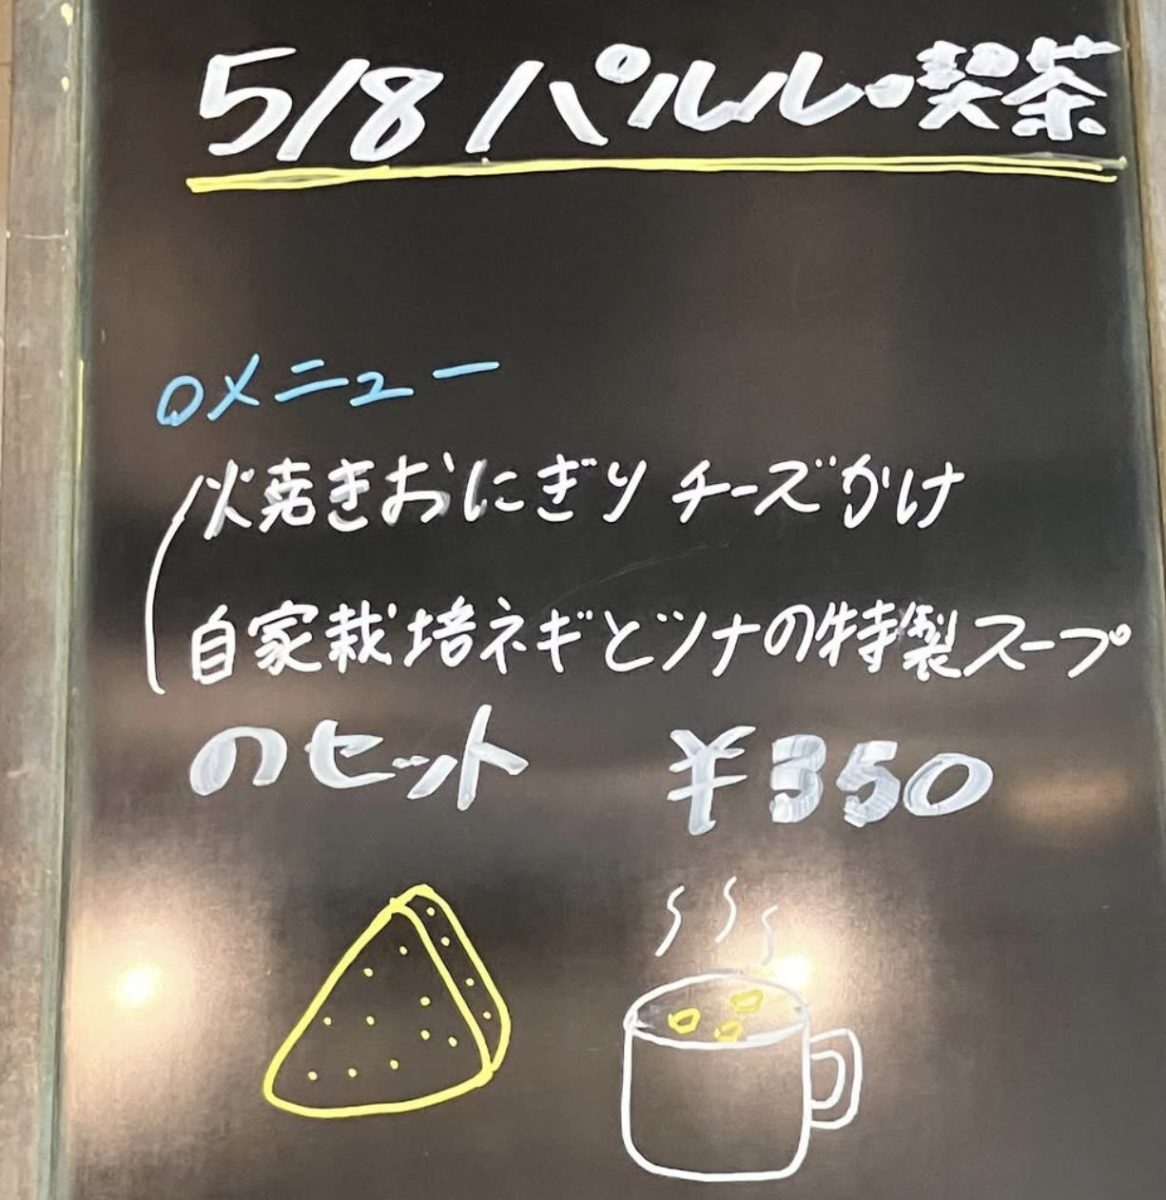 5/8 パルル・喫茶
○メニュー
焼きおにぎり チーズかけ
自家栽培ネギとツナの特製スープ
のセット ¥350